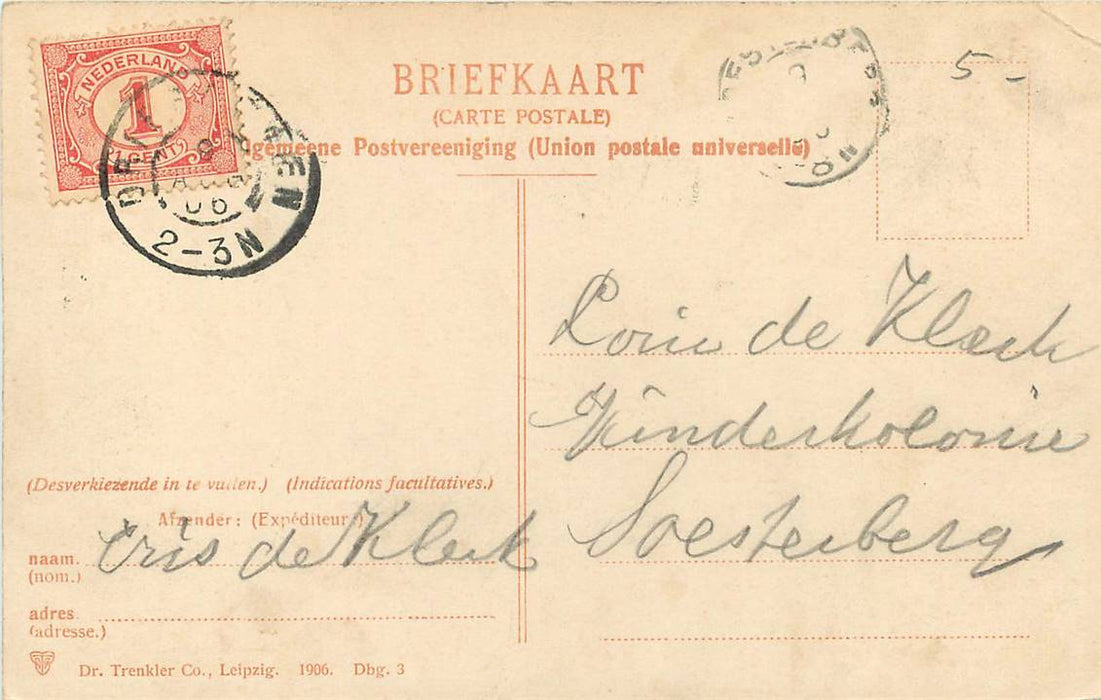 NEDERLAND
1
CENT
AUG
06
2-3N
BRIEFKAART
(CARTE POSTALE)
lgemeene Postvereeniging (Union postale universelle)
5-
Louis de Klerk
Kinderkolonie
Soesterberg
(Desverkiezende in te vullen.) (Indications facultatives.)
Afzender: (Expéditeur:)
naam. Cris de Klerk
(nom.)
adres
(adresse.)
Dr. Trenkler Co., Leipzig. 1906. Dbg. 3